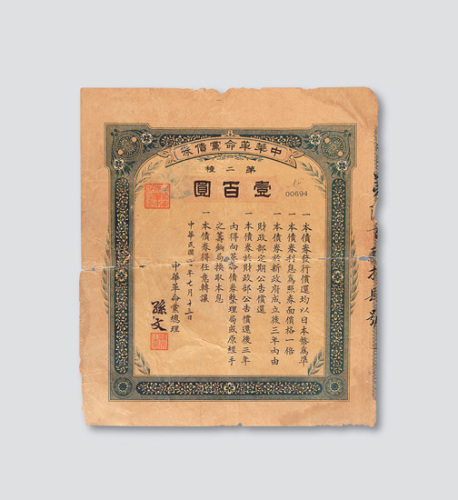 中華革命黨債券
第二種
壹百圓
00694
一本債券發行償還均以日本幣為準
一本債券利息為照券面價格一倍
一本債券於新政府成立後三年內由
財政部定期公告償還
一本債券於財政部公告償還後三年
內得向革命債券整理局或原經手
之籌餉局換取本息
一本債券得任意轉讓
中華民國年七月十三日
中華革命黨總理
孫文